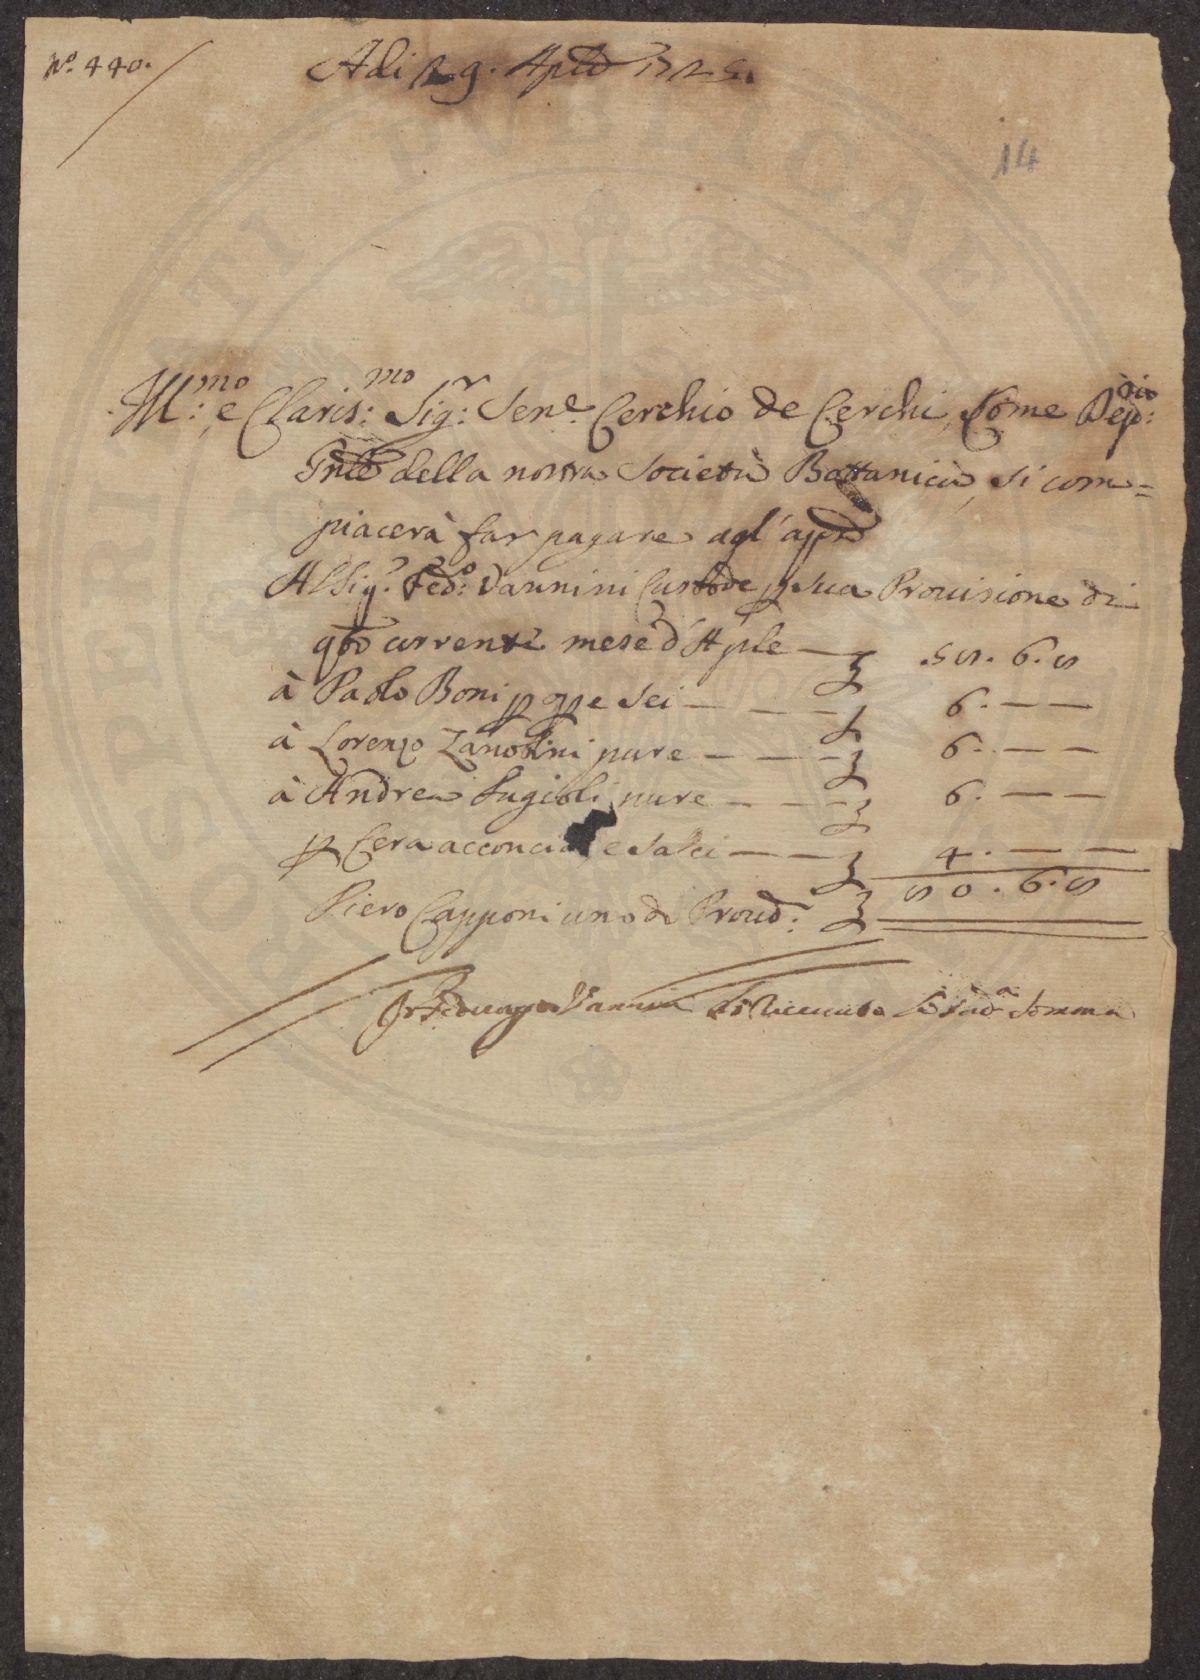 N.° 440.
Adi 29. Aple 1725.
14
Ill:mo e Claris:mo Sig:r Sen.e Cerchio de Cerchi, Come Dep:
della nostra Società Bottanica, si com=
piacerà far pagare agl'appō
Al Sig.r Fed:o Vannini Custode p sua Provisione di
qto corrente mese d'Aple — 6.
à Paolo Boni p ope sei — — — 6. — —
à Lorenzo Zanobini pure — — — 6. — —
à Andrea pure — — — 6. — —
p Cera acconcia e Salci — — — 4. — —
Piero Capponi uno de Provd:
6.
Vannini Somma
SOSPITATI PUBLICAE